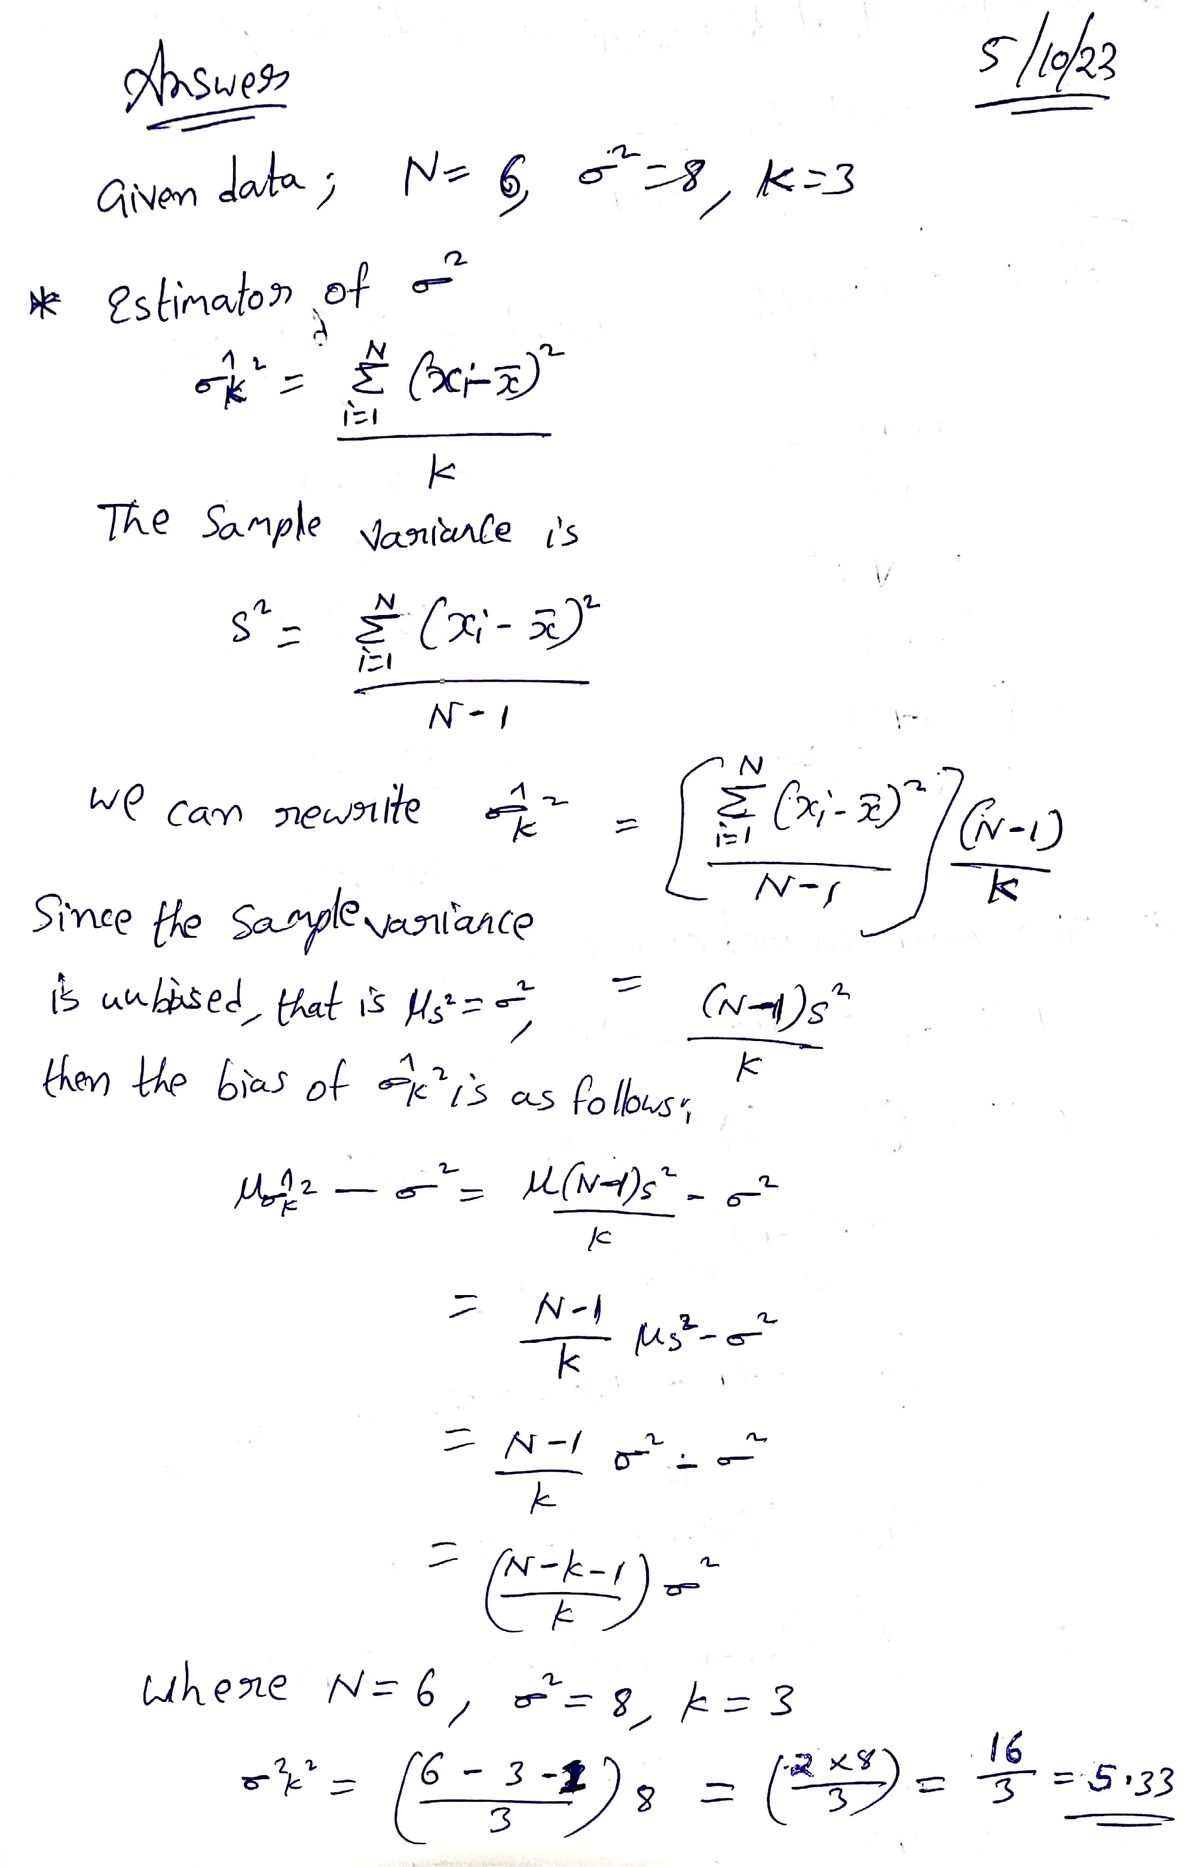 Answer
5/10/23
Given data; N= 6, σ²=8, k=3
* Estimator of σ²
σ̂k² = Σ_{i=1}^{N} (xi-x̄)² / k
The Sample variance is
S² = Σ_{i=1}^{N} (xi - x̄)² / N-1
we can rewrite σ̂k² = [Σ_{i=1}^{N} (xi-x̄)² / N-1] (N-1)/k
Since the Sample variance
is unbised, that is μs²=σ², = (N-1)s² / k
then the bias of σ̂k² is as follows;
μσ̂k² — σ² = μ(N-1)s² / k - σ²
= N-1 / k μs² - σ²
= N-1 / k σ² - σ²
= (N-k-1 / k) σ²
where N=6, σ²=8, k=3
σ̂k² = (6-3-1 / 3) 8 = (2×8 / 3) = 16/3 = 5.33